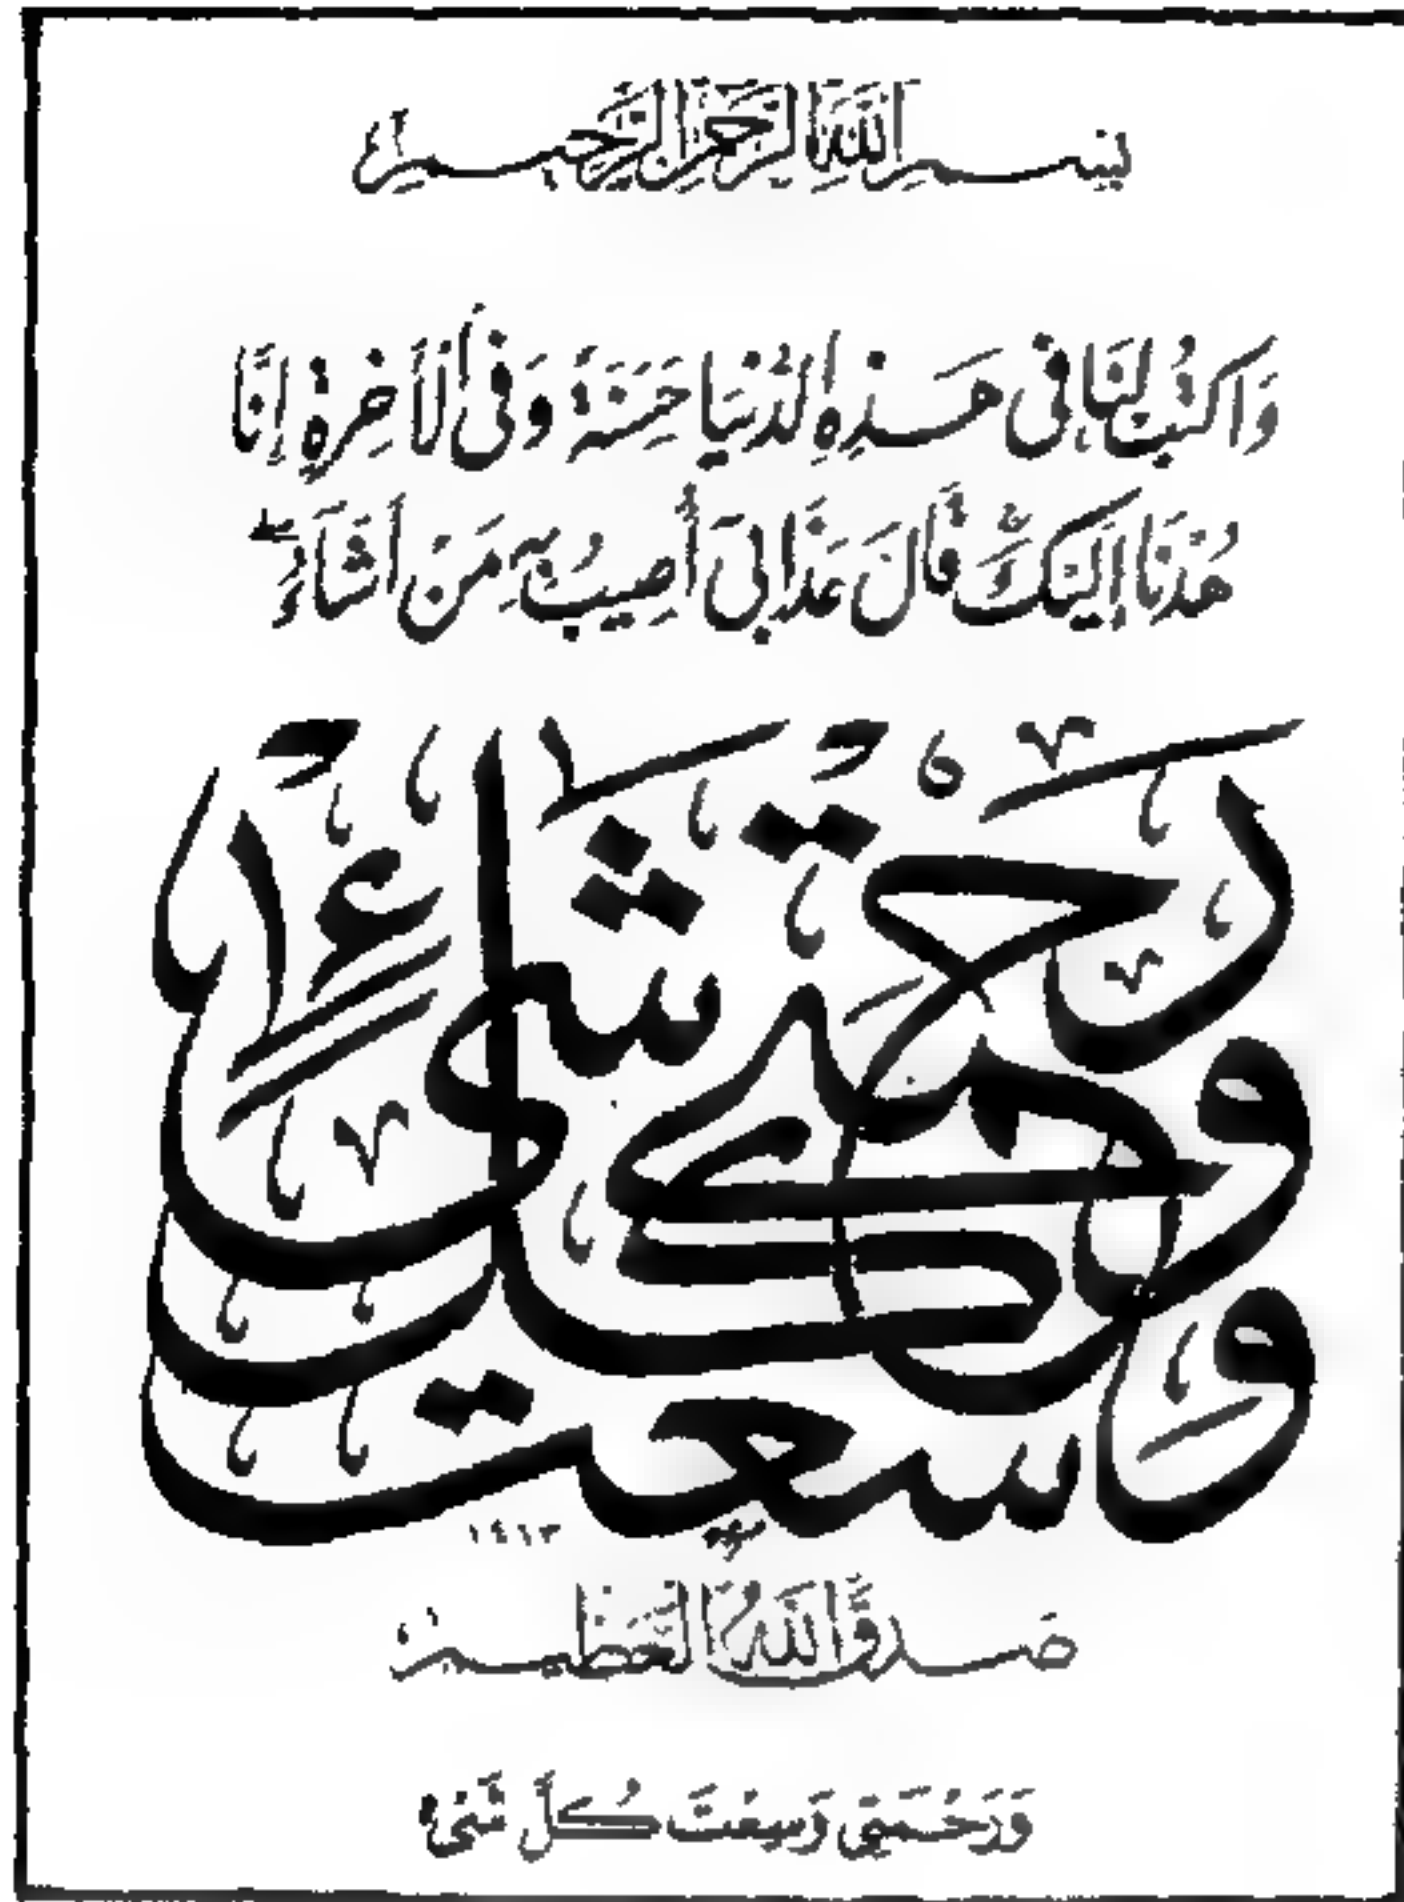 بِسْمِ اللَّهِ الرَّحْمَٰنِ الرَّحِيمِ
وَاكْتُبْ لَنَا فِي هَٰذِهِ الدُّنْيَا حَسَنَةً وَفِي الْآخِرَةِ إِنَّا
هُدْنَا إِلَيْكَ قَالَ عَذَابِي أُصِيبُ بِهِ مَنْ أَشَاءُ
وَرَحْمَتِي وَسِعَتْ كُلَّ شَيْءٍ
١٤١٣
صَدَقَ اللَّهُ الْعَظِيمُ
وَرَحْمَتِي وَسِعَتْ كُلَّ شَيْءٍ